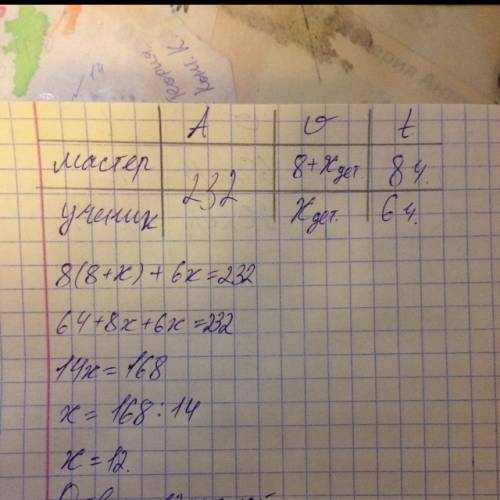 A υ t
мастер 232 8+x дет 8 ч.
ученик x дет. 6 ч.
8(8+x)+6x=232
64+8x+6x=232
14x=168
x=168:14
x=12.